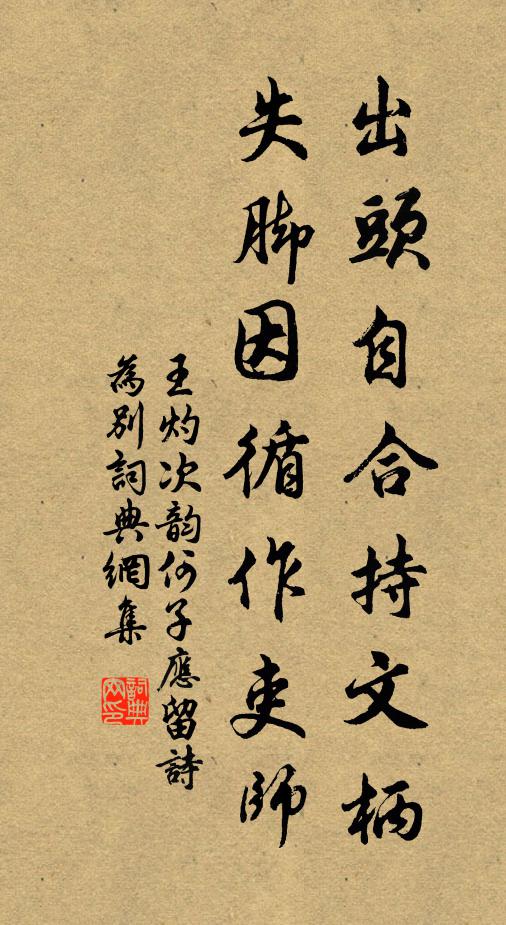 出頭自合持文柄
失脚因循作吏師
王灼次韵何子應留詩
為別詞典網集
詞典
网印